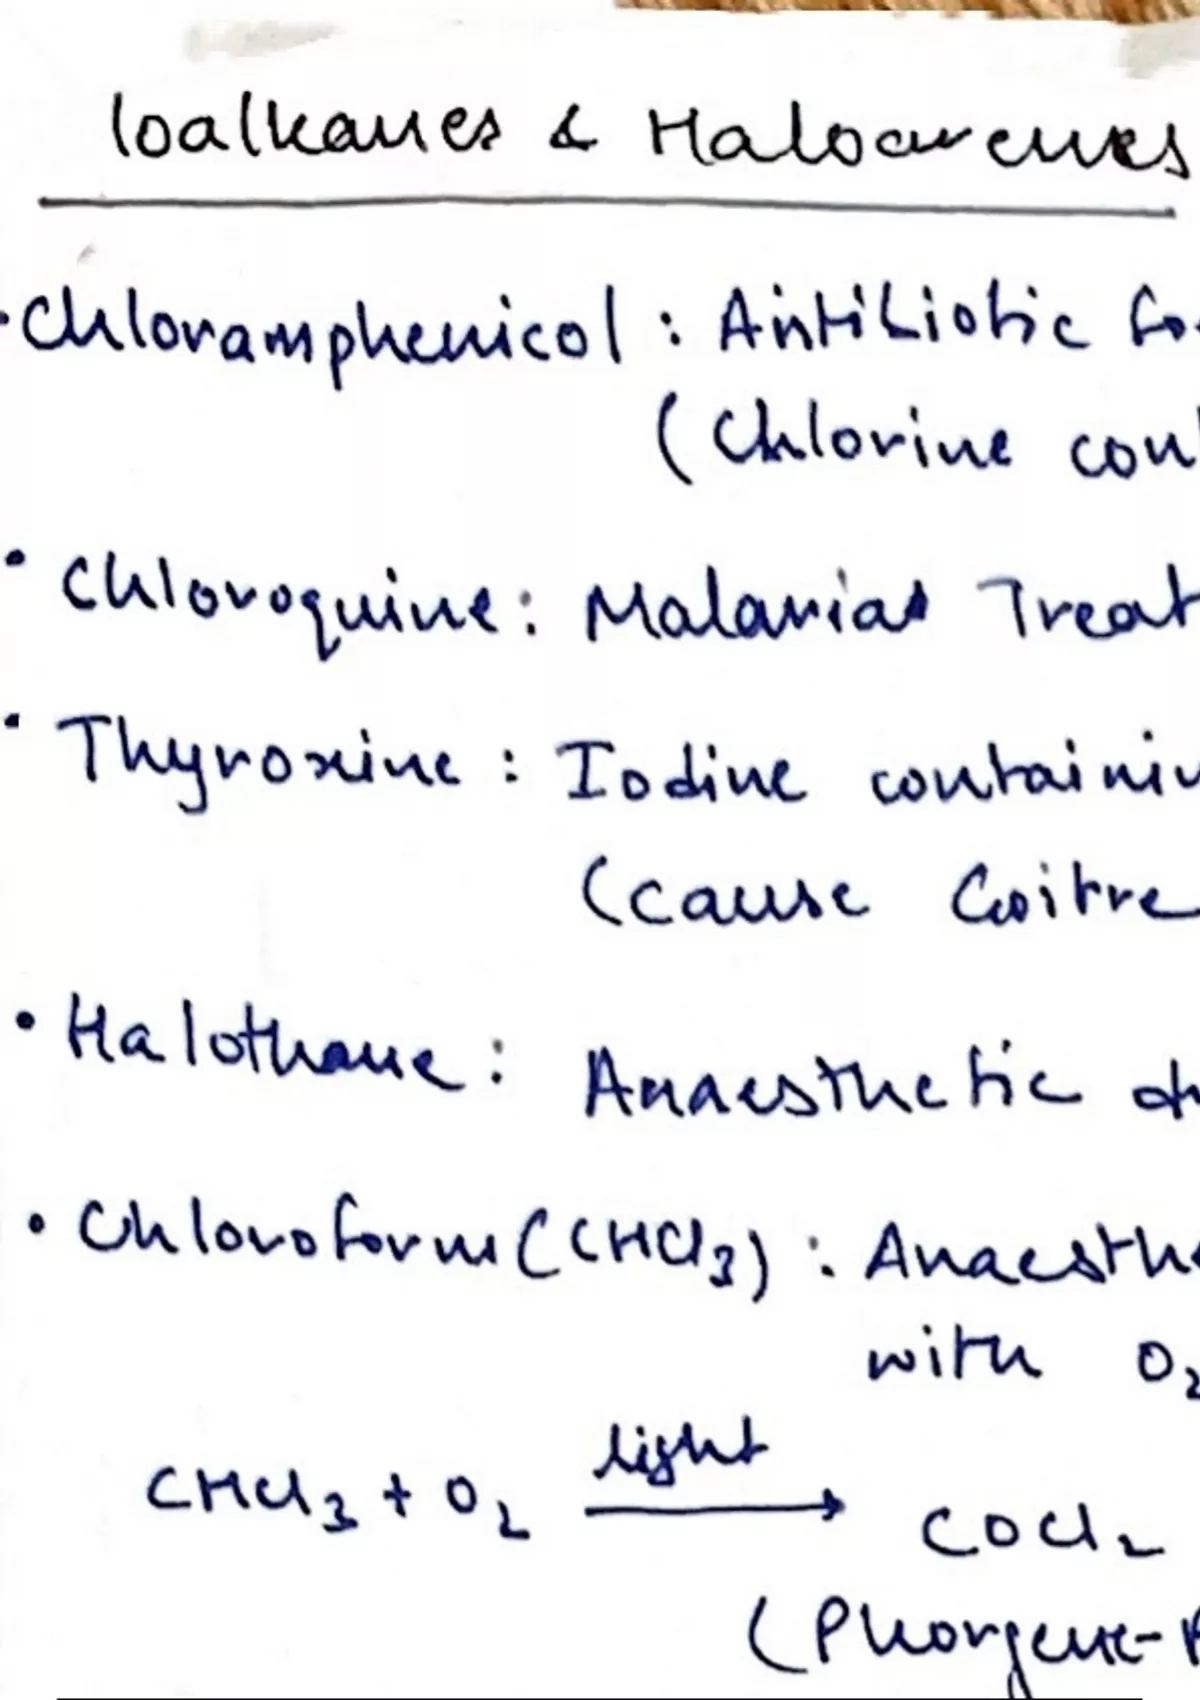 loalkanes & Haloarenes
• Chloramphenicol : Antibiotic fo
(Chlorine con
• Chloroquine : Malarias Treat
• Thyroxine : Iodine containin
(cause Goitre
• Halothane : Anaesthetic d
• Chloroform (CHCl3) : Anaesthe
with O2
light
CHCl3 + O2 → COCl2
(Phosgene-